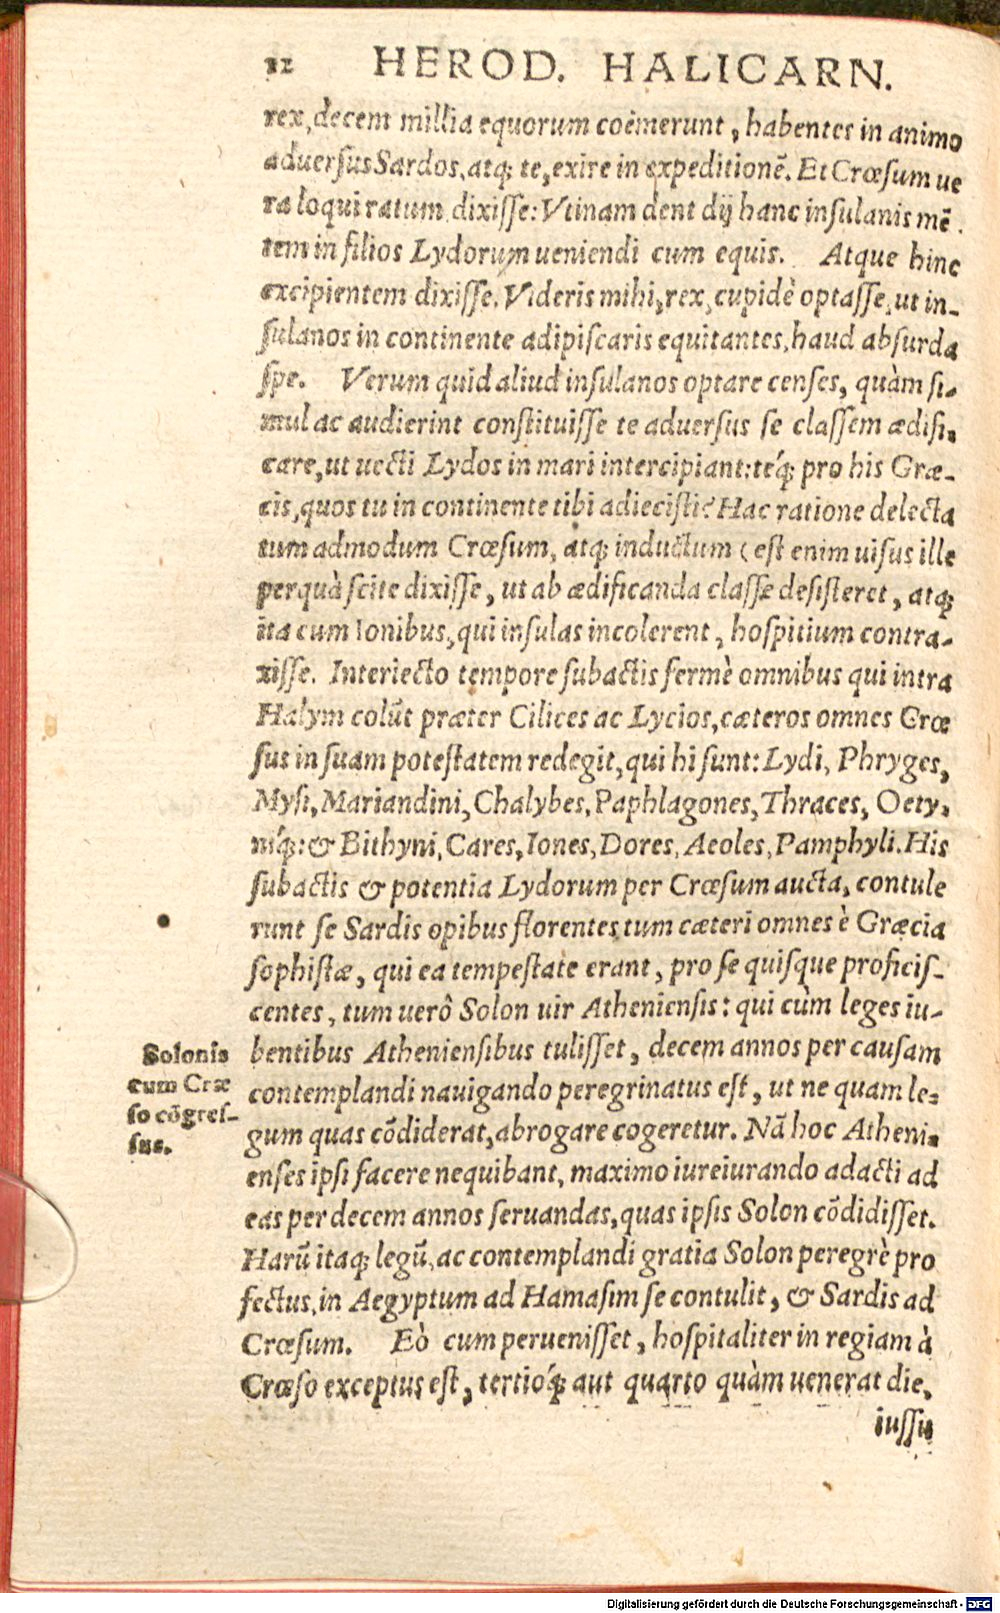 12 HEROD. HALICARN.
rex, decem millia equorum coëmerunt, habentes in animo
aduersus Sardos, atq; te, exire in expeditionẽ. Et Crœsum ue
ra loqui ratum, dixisse: Vtinam dent dij hanc insulanis mẽ
tem in filios Lydorum ueniendi cum equis. Atque hinc
excipientem dixisse. Videris mihi, rex, cupidè optasse, ut in-
sulanos in continente adipiscaris equitantes, haud absurda
spe. Verum quid aliud insulanos optare censes, quàm si-
mul ac audierint constituisse te aduersus se classem ædifi-
care, ut uecti Lydos in mari intercipiant: téq; pro his Græ-
cis, quos tu in continente tibi adiecisti? Hac ratione delecta
tum admodum Crœsum, atq; inductum (est enim uisus ille
perquà scite dixisse, ut ab ædificanda classe desisteret, atq;
ita cum Ionibus, qui insulas incolerent, hospitium contra-
xisse. Interiecto tempore subactis fermè omnibus qui intra
Halym colũt præter Cilices ac Lycios, cæteros omnes Crœ
sus in suam potestatem redegit, qui hi sunt: Lydi, Phryges,
Mysi, Mariandini, Chalybes, Paphlagones, Thraces, Oety-
níq;: & Bithyni, Cares, Iones, Dores, Aeoles, Pamphyli. His
subactis & potentia Lydorum per Crœsum aucta, contule
runt se Sardis opibus florentes, tum cæteri omnes è Græcia
sophistæ, qui ea tempestate erant, pro se quisque proficis-
centes, tum uerô Solon uir Atheniensis: qui cùm leges iu-
bentibus Atheniensibus tulisset, decem annos per causam
contemplandi nauigando peregrinatus est, ut ne quam le-
gum quas cõdiderat, abrogare cogeretur. Nã hoc Atheni-
enses ipsi facere nequibant, maximo iureiurando adacti ad
eas per decem annos seruandas, quas ipsis Solon cõdidisset.
Harũ itaq; legũ, ac contemplandi gratia Solon peregrè pro
fectus, in Aegyptum ad Hamasim se contulit, & Sardis ad
Crœsum. Eò cum peruenisset, hospitaliter in regiam à
Crœso exceptus est, tertióq; aut quarto quàm uenerat die,
iussu
Solonis
cum Cræ
so cõgres-
sus.
Digitalisierung gefördert durch die Deutsche Forschungsgemeinschaft - DFG